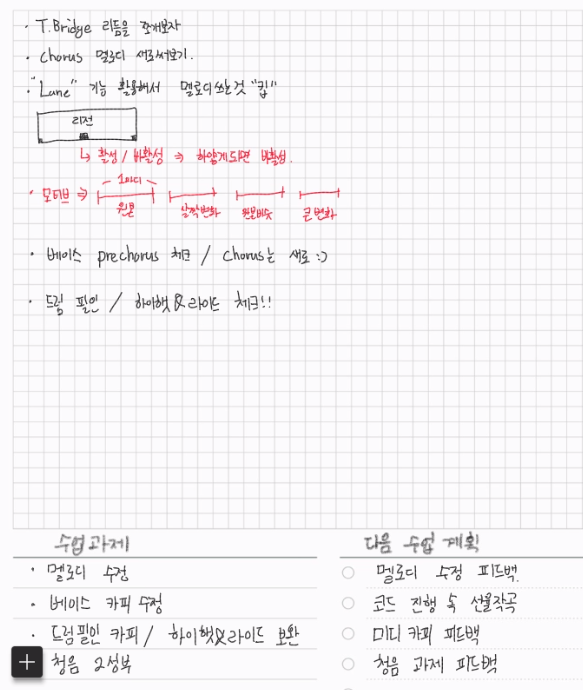 · T.Bridge 리듬을 쪼개보자
· Chorus 멜로디 새로써보기.
· "Lane" 기능 활용해서 멜로디쓰는것 "킵"
리전
↳ 활성 / 비활성 ⇒ 하얗게되면 비활성.
1마디
· 모티브 ⇒
원본 살짝변화 원본비슷 큰변화
· 베이스 prechorus 체크 / Chorus는 새로 :)
· 드럼 필인 / 하이햇&라이드 체크!!
수업과제
· 멜로디 수정
· 베이스 카피 수정
· 드럼필인 카피 / 하이햇&라이드 보완
청음 2성부
다음 수업 계획
멜로디 수정 피드백.
코드 진행 속 선율작곡
미디 카피 피드백
청음 과제 피드백